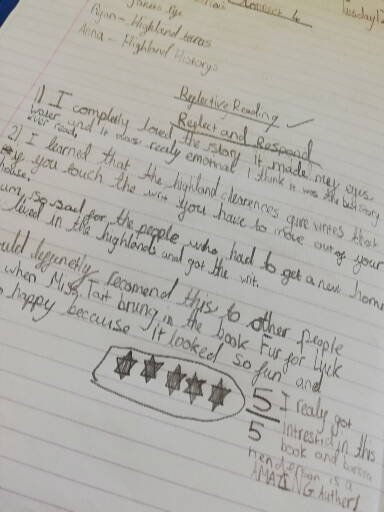 Ryan - Highland
Anna - Highland Historys
Reflective Reading
Reflect and Respond
1) I completly loved the story it made my eyes
water and it was realy emotnal I think it was the best story
ever read
2) I learned that the highland clearences give writes that
you touch the writ you have to move out of your
house.
so sad for the people who had to get a new home
lived in the highlands and got the writ.
recomend this to other people
when Miss Tait bruing in the book Fur for Luck
happy beccause it looked so fun and
5/5
I realy got
intrestid in this
book and
is a
AMAZING Author!